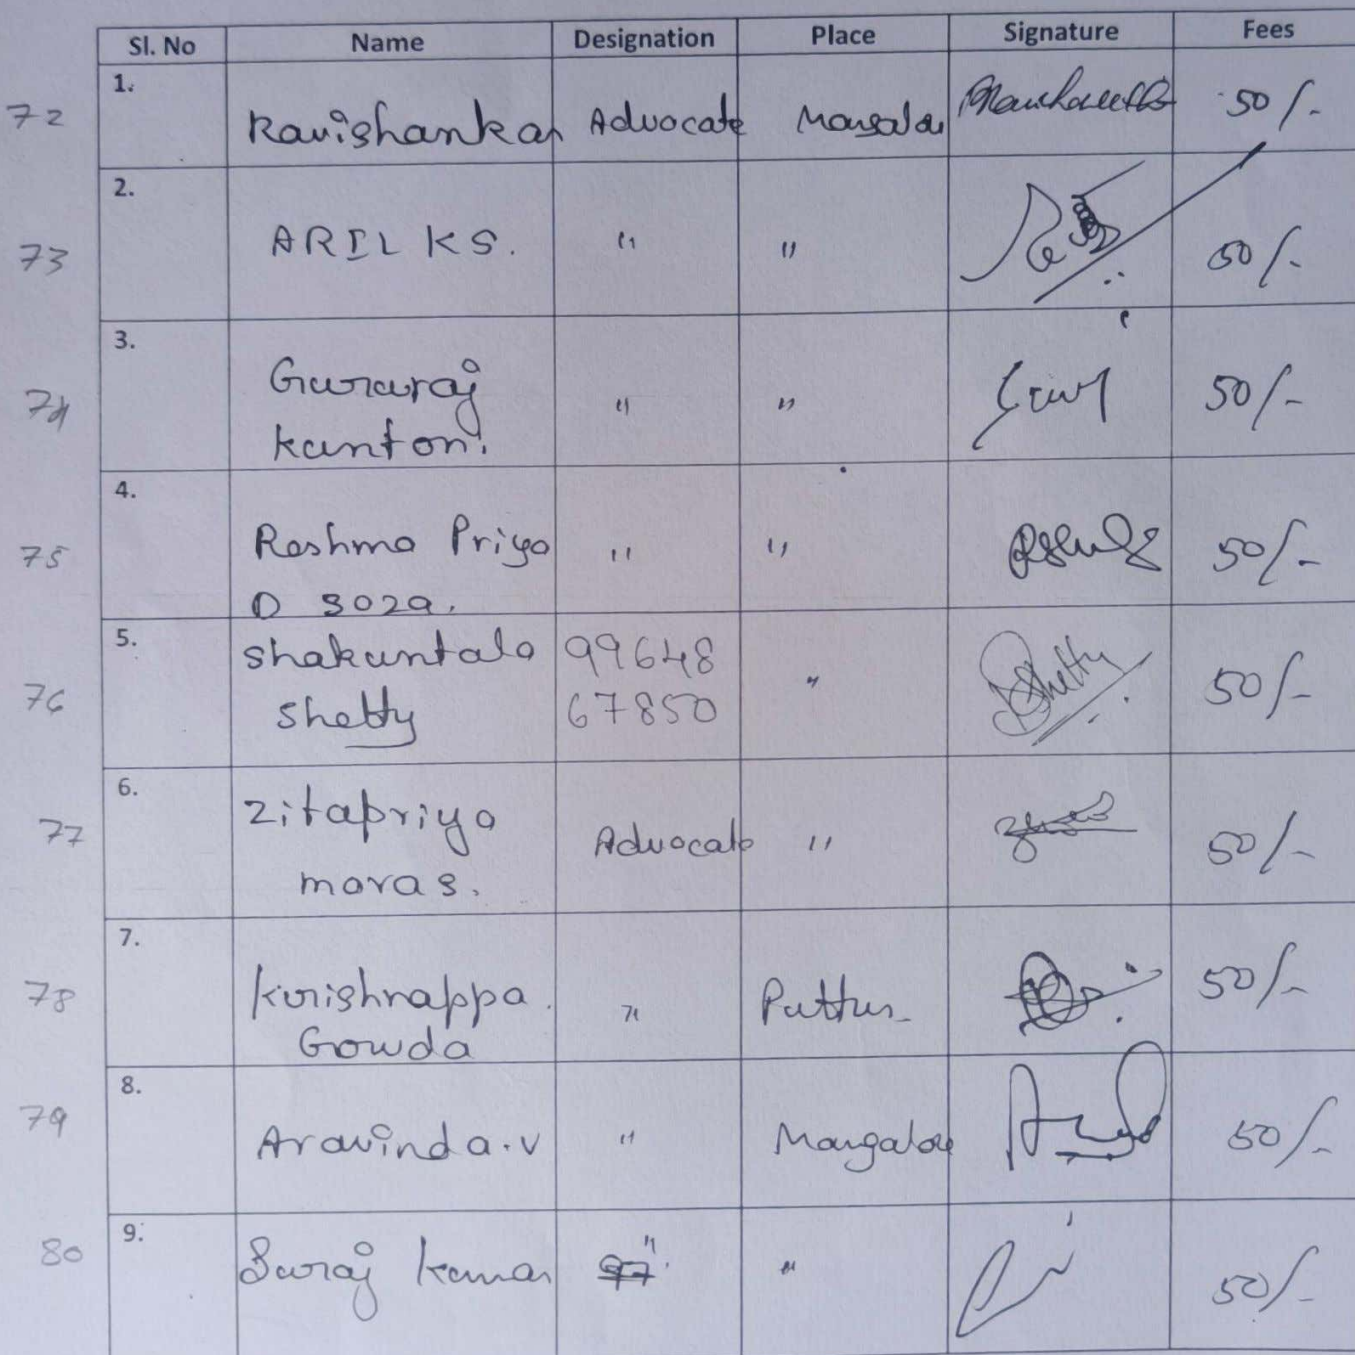 Sl. No Name Designation Place Signature Fees
72 1. Ravishankar Advocate Mangalore 50/-
73 2. ARIL KS. " " 50/-
74 3. Gururaj " " 50/-
kanton.
75 4. Reshma Priya " " 50/-
D soza.
76 5. Shakuntala 99648 " Shetty 50/-
Shetty 67850
77 6. Zitapriya Advocate " 50/-
moras.
78 7. Krishnappa. " Puttur 50/-
Gowda
79 8. Aravinda.v " Mangalore 50/-
80 9. Suraj kumar " " 50/-